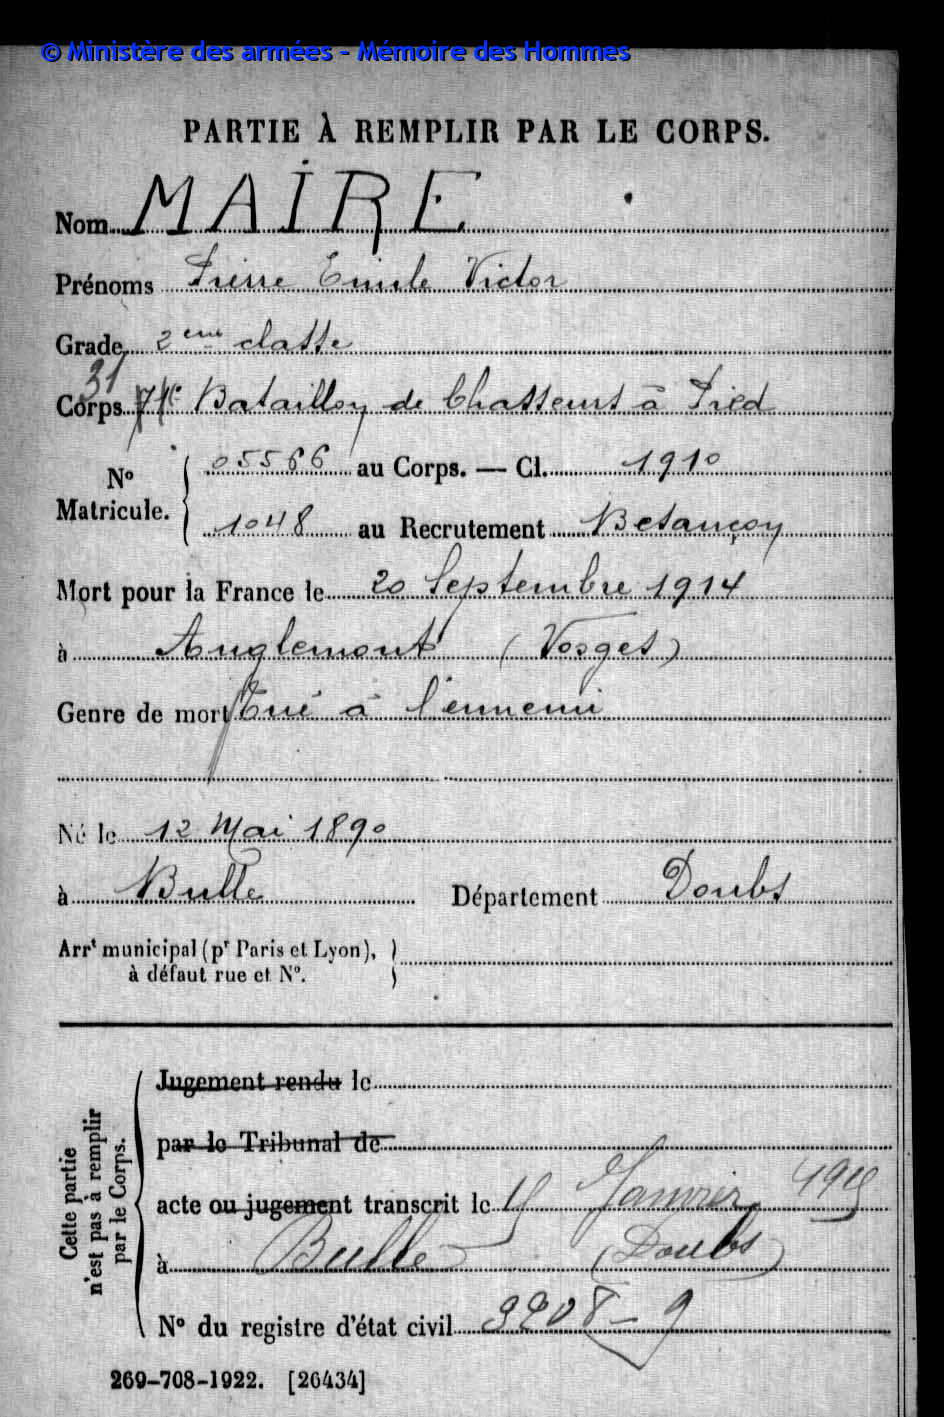 © Ministère des armées - Mémoire des Hommes
PARTIE À REMPLIR PAR LE CORPS.
Nom MAIRE
Prénoms Pierre Emile Victor
Grade 2eme classe
31
Corps Bataillon de Chasseurs à Pied
No Matricule. 05566 au Corps. — Cl. 1910
1048 au Recrutement Besançon
Mort pour la France le 20 Septembre 1914
à Anglemont (Vosges)
Genre de mort Tué à l'ennemi
Né le 12 Mai 1890
à Bulle Département Doubs
Arrt municipal (pr Paris et Lyon),
à défaut rue et No.
Cette partie
n'est pas à remplir
par le Corps.
Jugement rendu le
par le Tribunal de
acte ou jugement transcrit le Janvier
à Bulle (Doubs)
No du registre d'état civil
269-708-1922. [26434]